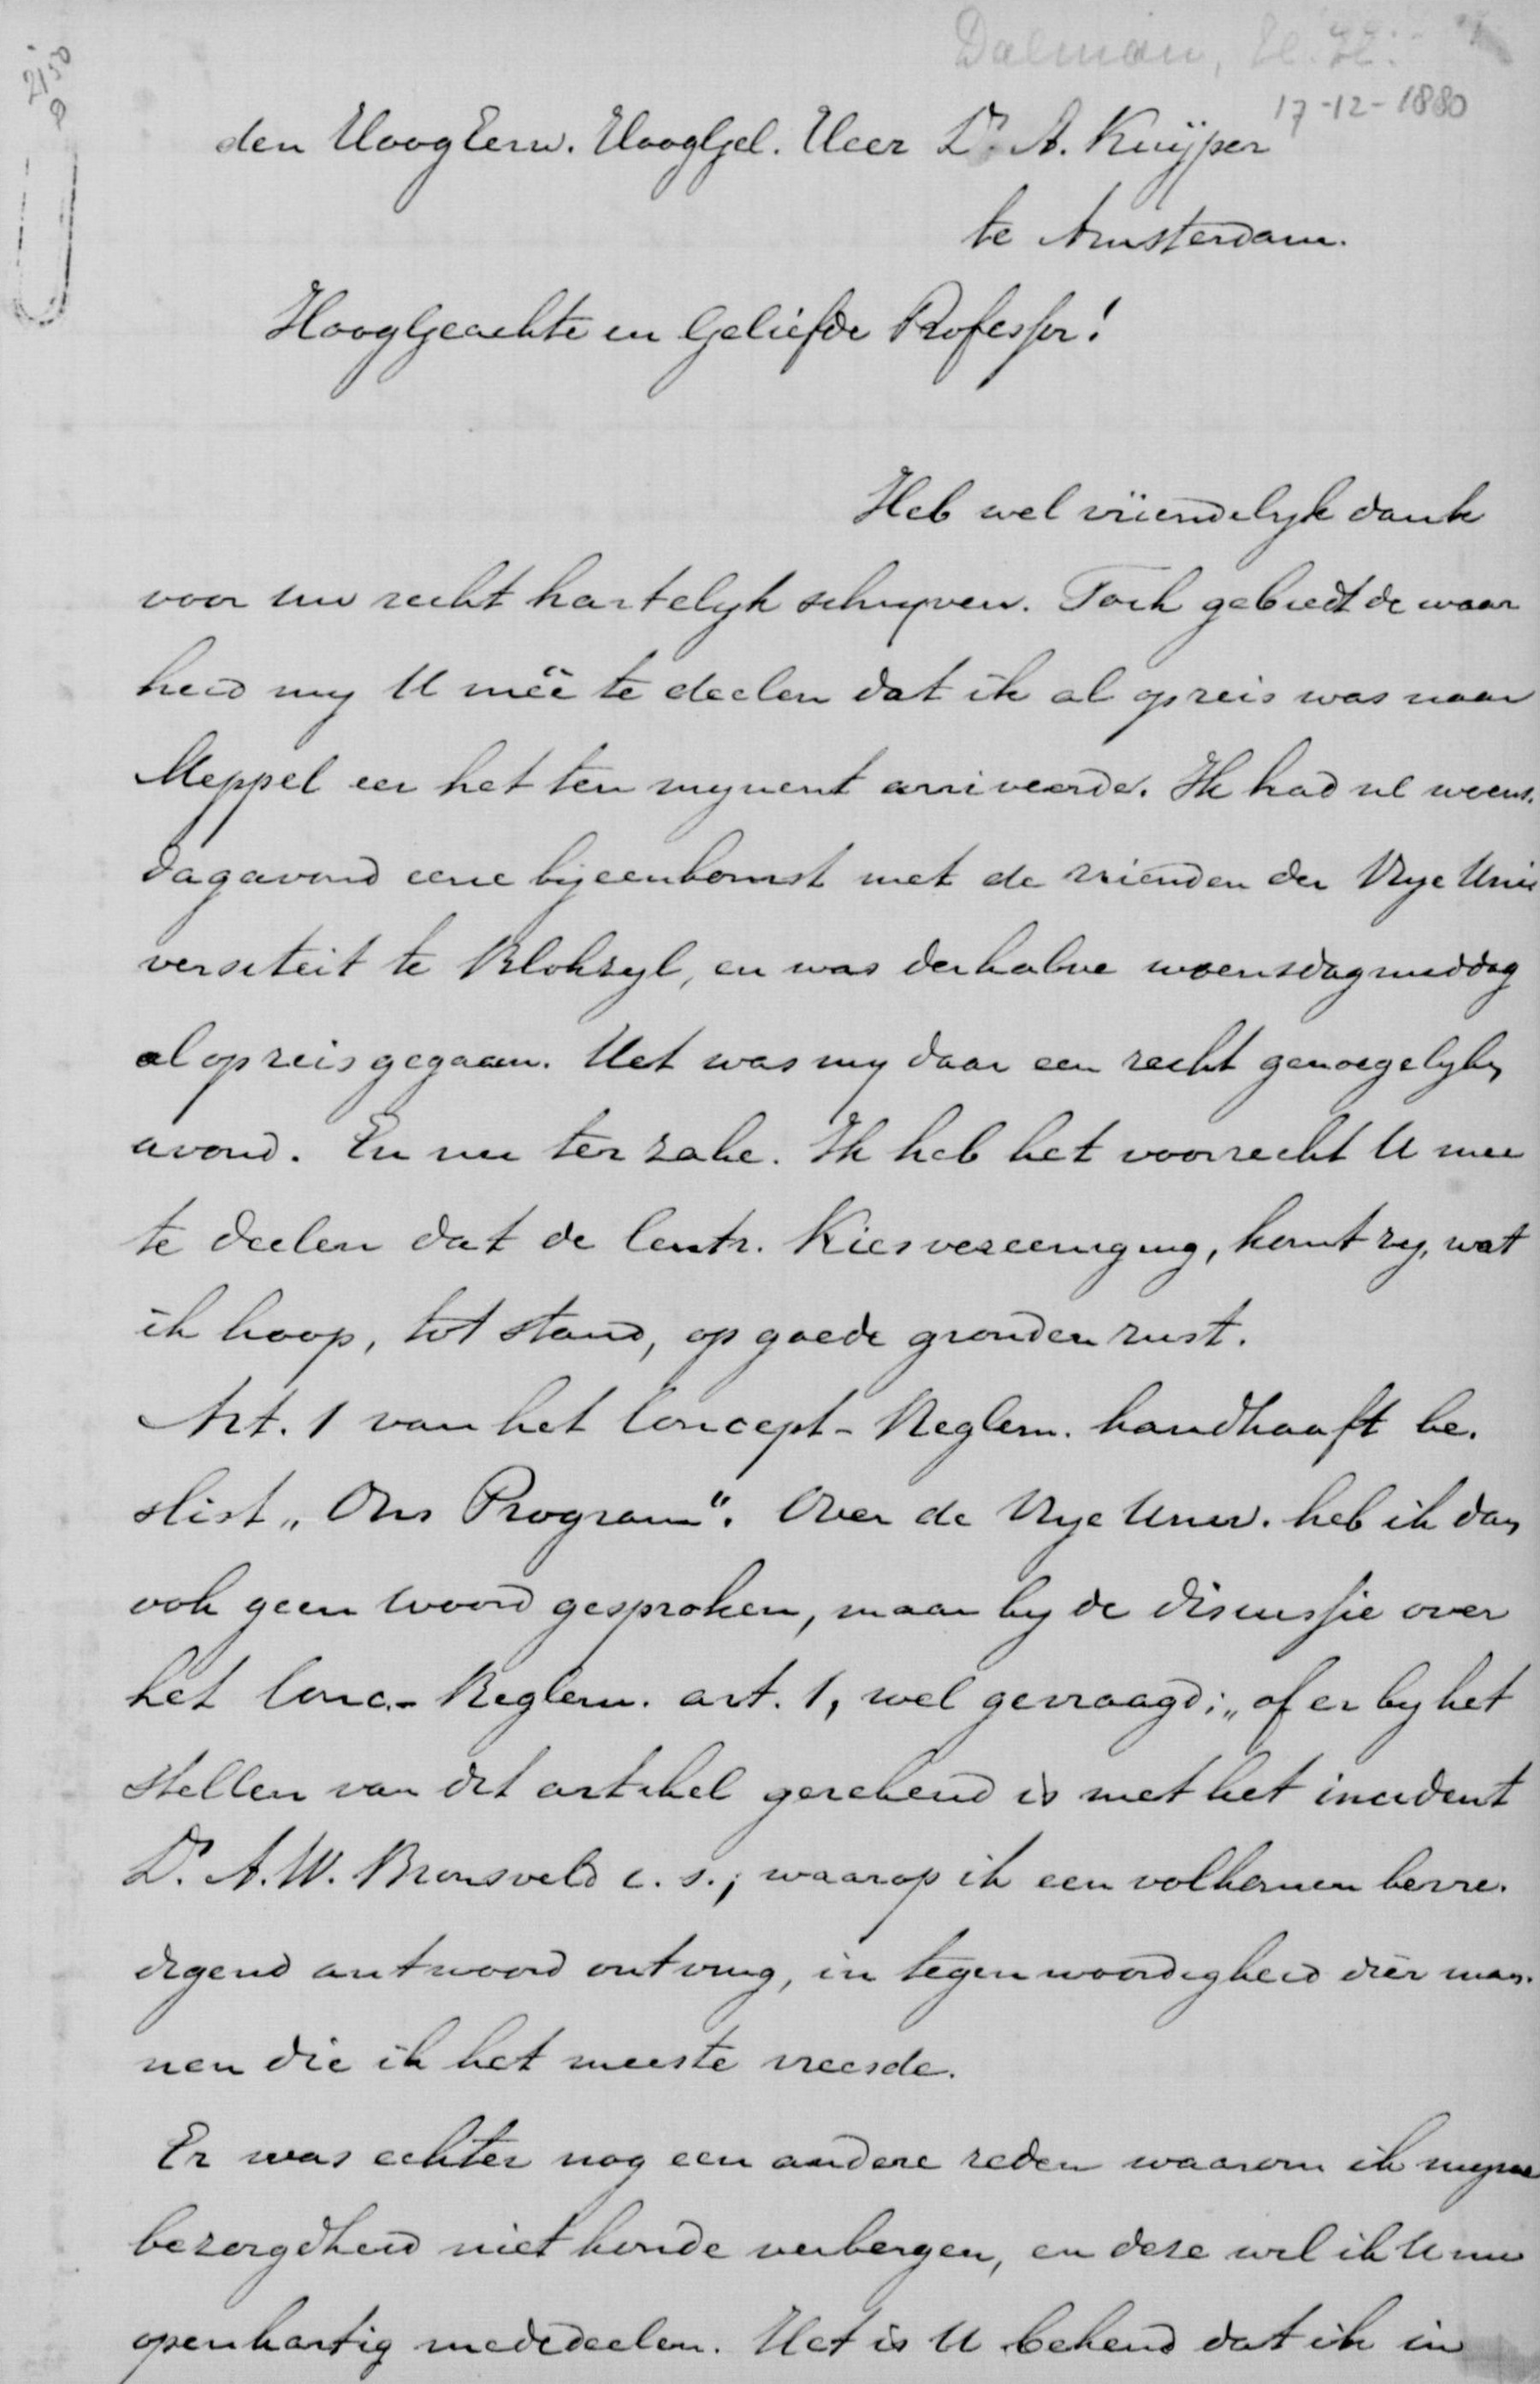 Dalman, H. H.
17-12-1880
2150
den HoogEerw. HoogGel. Heer Dr. A. Kuÿper
te Amsterdam.
HoogGeachte en Geliefde Professor!
Heb wel vriendelyk dank
voor uw recht hartelyk schryven. Toch gebiedt de waar
heid my U meê te deelen dat ik al op reis was naar
Meppel eer het ten mynent arriveerde. Ik had nl woens.
dagavond eene bijeenkomst met de vrienden der Vrye Uni
versiteit te Blokzyl, en was derhalve woensdagmiddag
al op reis gegaan. Het was my daar een recht genoegelyken
avond. En nu ter zake. Ik heb het voorrecht U mee
te deelen dat de Centr. Kiesvereeniging, komt zy, wat
ik hoop, tot stand, op goede gronden rust.
Art. 1 van het Concept-Reglem. handhaaft be.
slist „Ons Program". Over de Vrye Univ. heb ik dan
ook geen woord gesproken, maar by de discussie over
het Conc.-Reglem. art. 1, wel gevraagd: „of er by het
stellen van dit artikel gerekend is met het incident
Dr. A. W. Bronsveld c. s.; waarop ik een volkomen bevre.
digend antwoord ontving, in tegenwoordigheid dier man.
nen die ik het meeste vreesde.
Er was echter nog een andere reden waarom ik myne
bezorgdheid niet konde verbergen, en deze wil ik U nu
openhartig mededeelen. Het is U bekend dat ik in